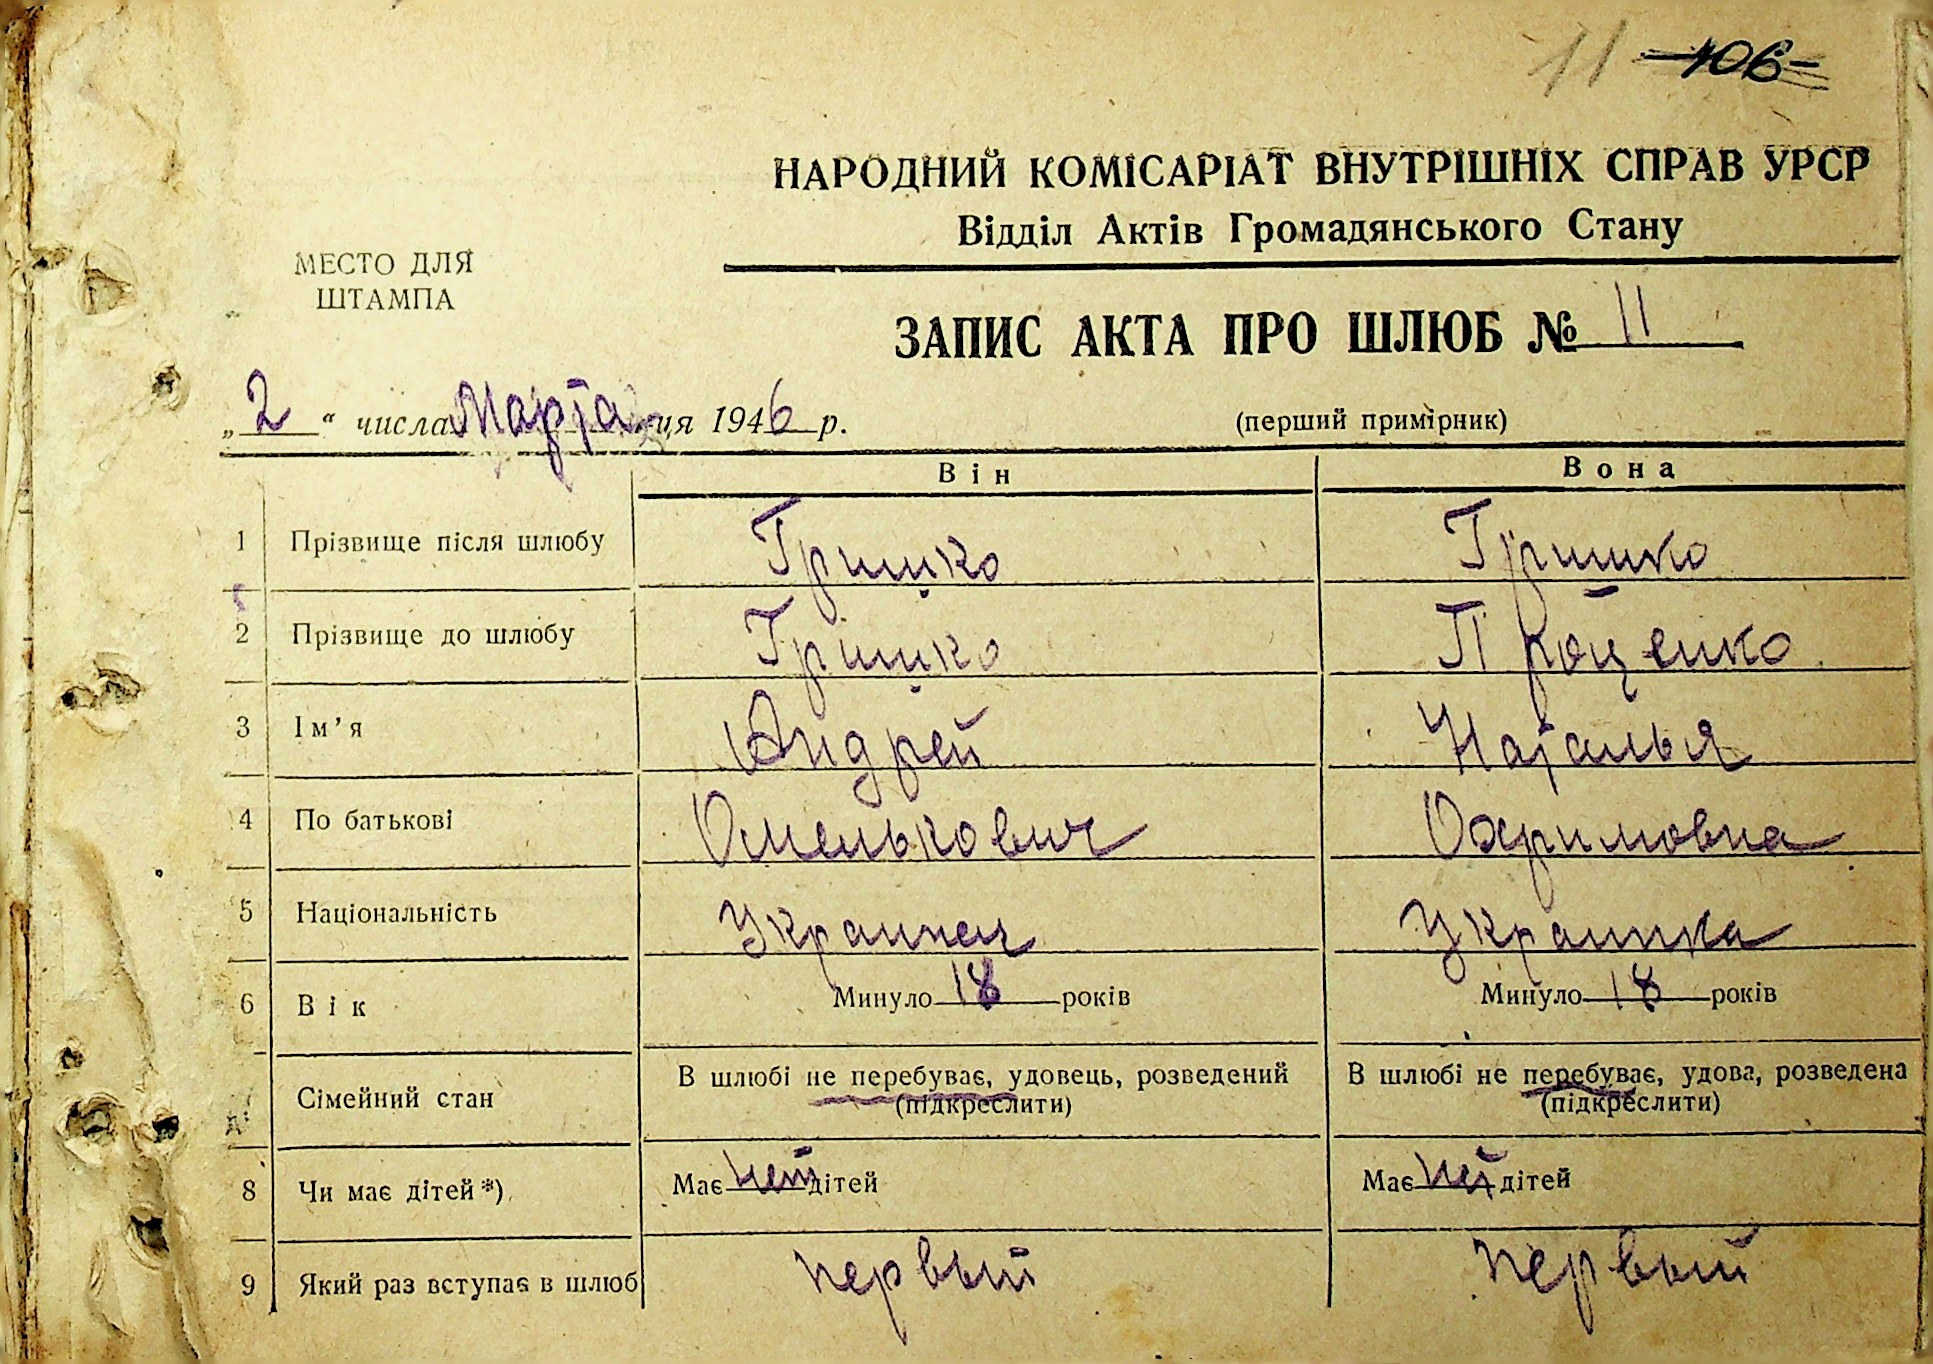 11 106
НАРОДНИЙ КОМІСАРІАТ ВНУТРІШНІХ СПРАВ УРСР
Відділ Актів Громадянського Стану
МЕСТО ДЛЯ
ШТАМПА
ЗАПИС АКТА ПРО ШЛЮБ № 11
„2“ числа Марта ця 1946 р. (перший примірник)
Він Вона
1 Прізвище після шлюбу Гришко Гришко
2 Прізвище до шлюбу Грішко Проценко
3 Ім’я Андрей Наталья
4 По батькові Омелькович Охримовна
5 Національність Украинец Украинка
6 Вік Минуло 18 років Минуло 18 років
Сімейний стан В шлюбі не перебуває, удовець, розведений (підкреслити) В шлюбі не перебуває, удова, розведена (підкреслити)
8 Чи має дітей *) Має нет дітей Має нет дітей
9 Який раз вступає в шлюб первый первый